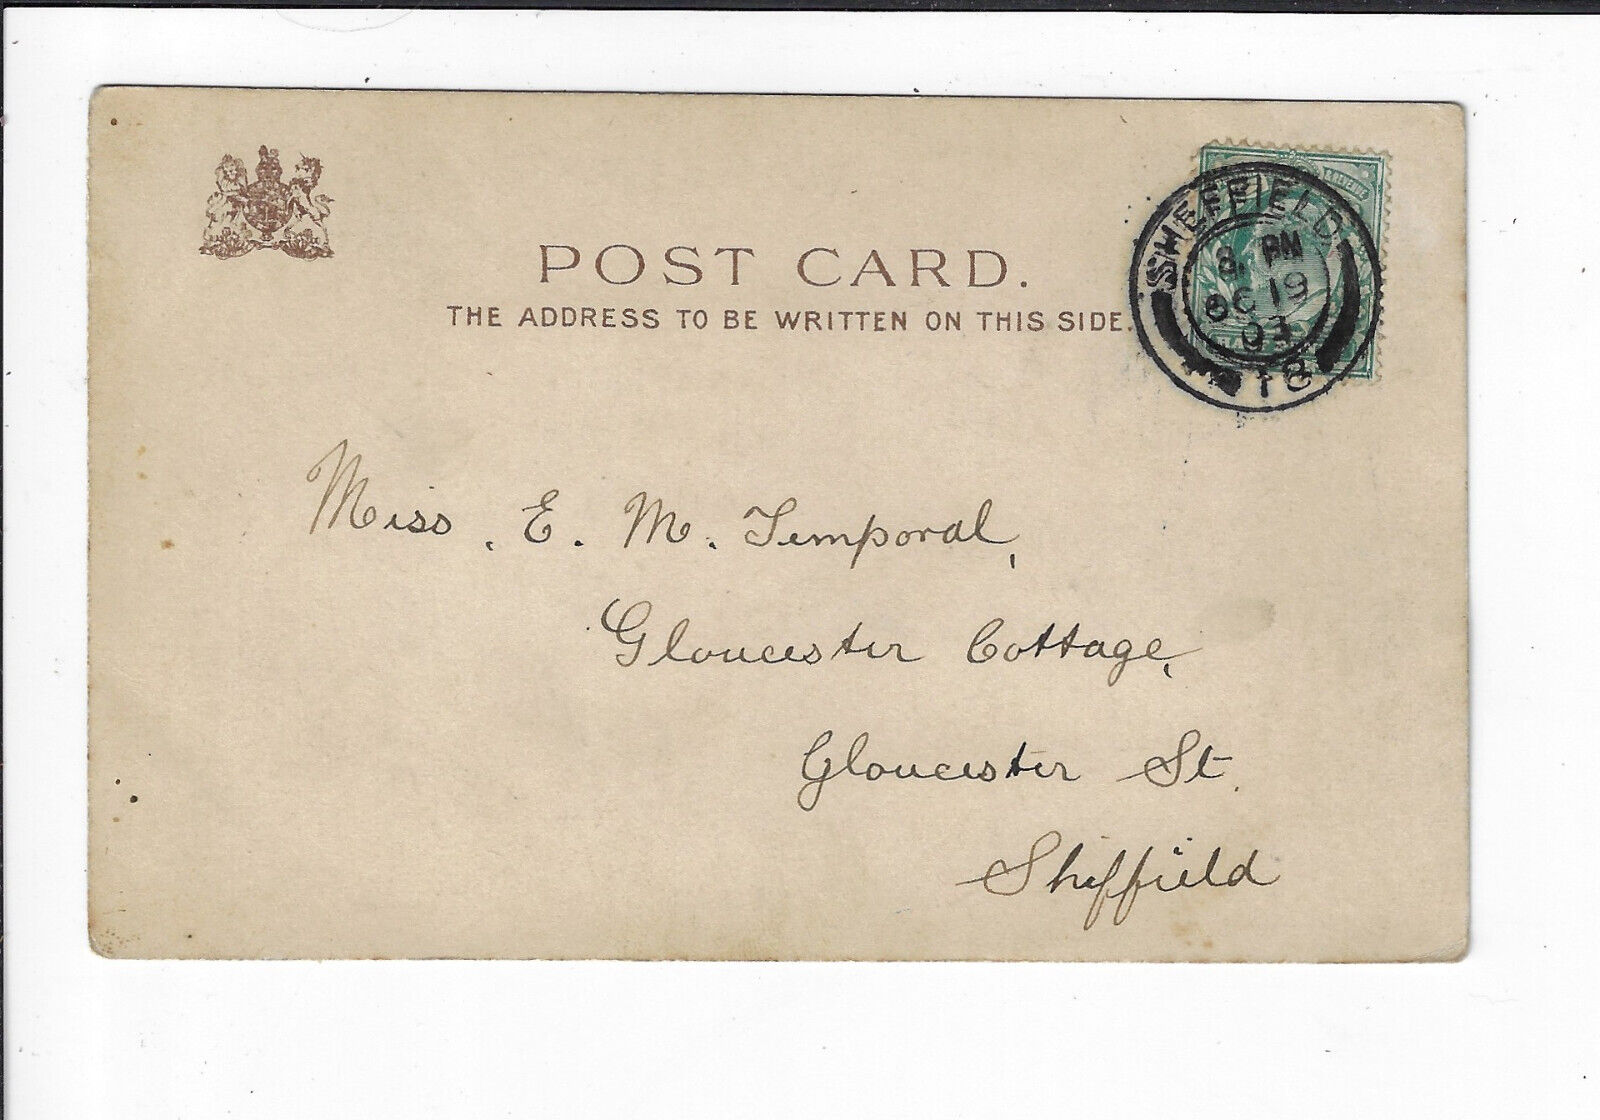 POST CARD.
THE ADDRESS TO BE WRITTEN ON THIS SIDE.
SHEFFIELD
PM
OC 19
03
18
Miss. E. M. Temporal,
Gloucester Cottage,
Gloucester St.
Sheffield